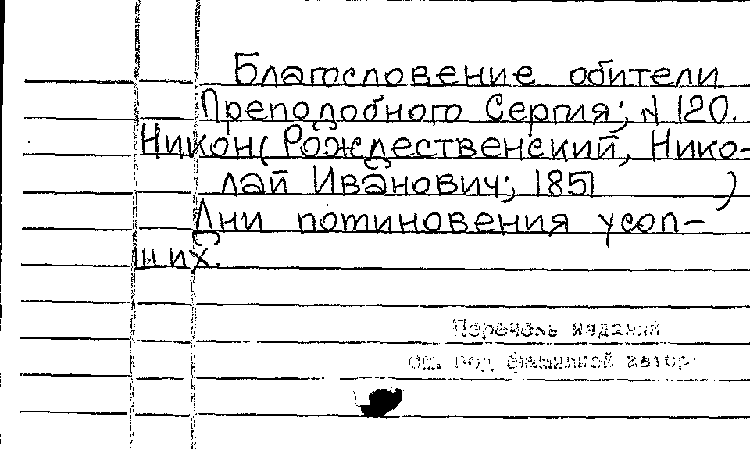 Благословение обители
Преподобного Сергия; № 120.
Никон( Рождественский, Нико-
лай Иванович; 1851 )
Дни поминовения усоп-
ших.
Перечень изданий
см. под фамилией автор